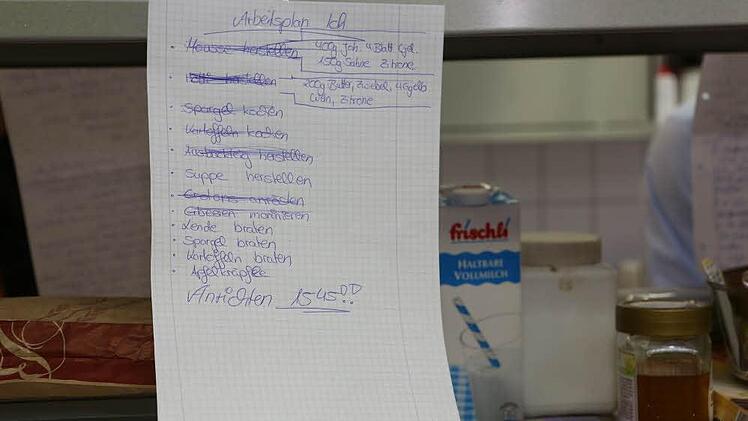 Arbeitsplan Ich
· Mousse herstellen 400g Joh. 4 Blatt Gel.
150g Sahne Zitrone
· herstellen 200g Butter, Zwiebel, 4 Eigelb
Wein, Zitrone
· Spargel kochen
· Kartoffeln kochen
· Ausbackteig herstellen
· Suppe herstellen
· anrösten
· marinieren
· Lende braten
· Spargel braten
· Kartoffeln braten
· Apfelkrapfen
Anrichten 1545
frischli
HALTBARE
VOLLMILCH